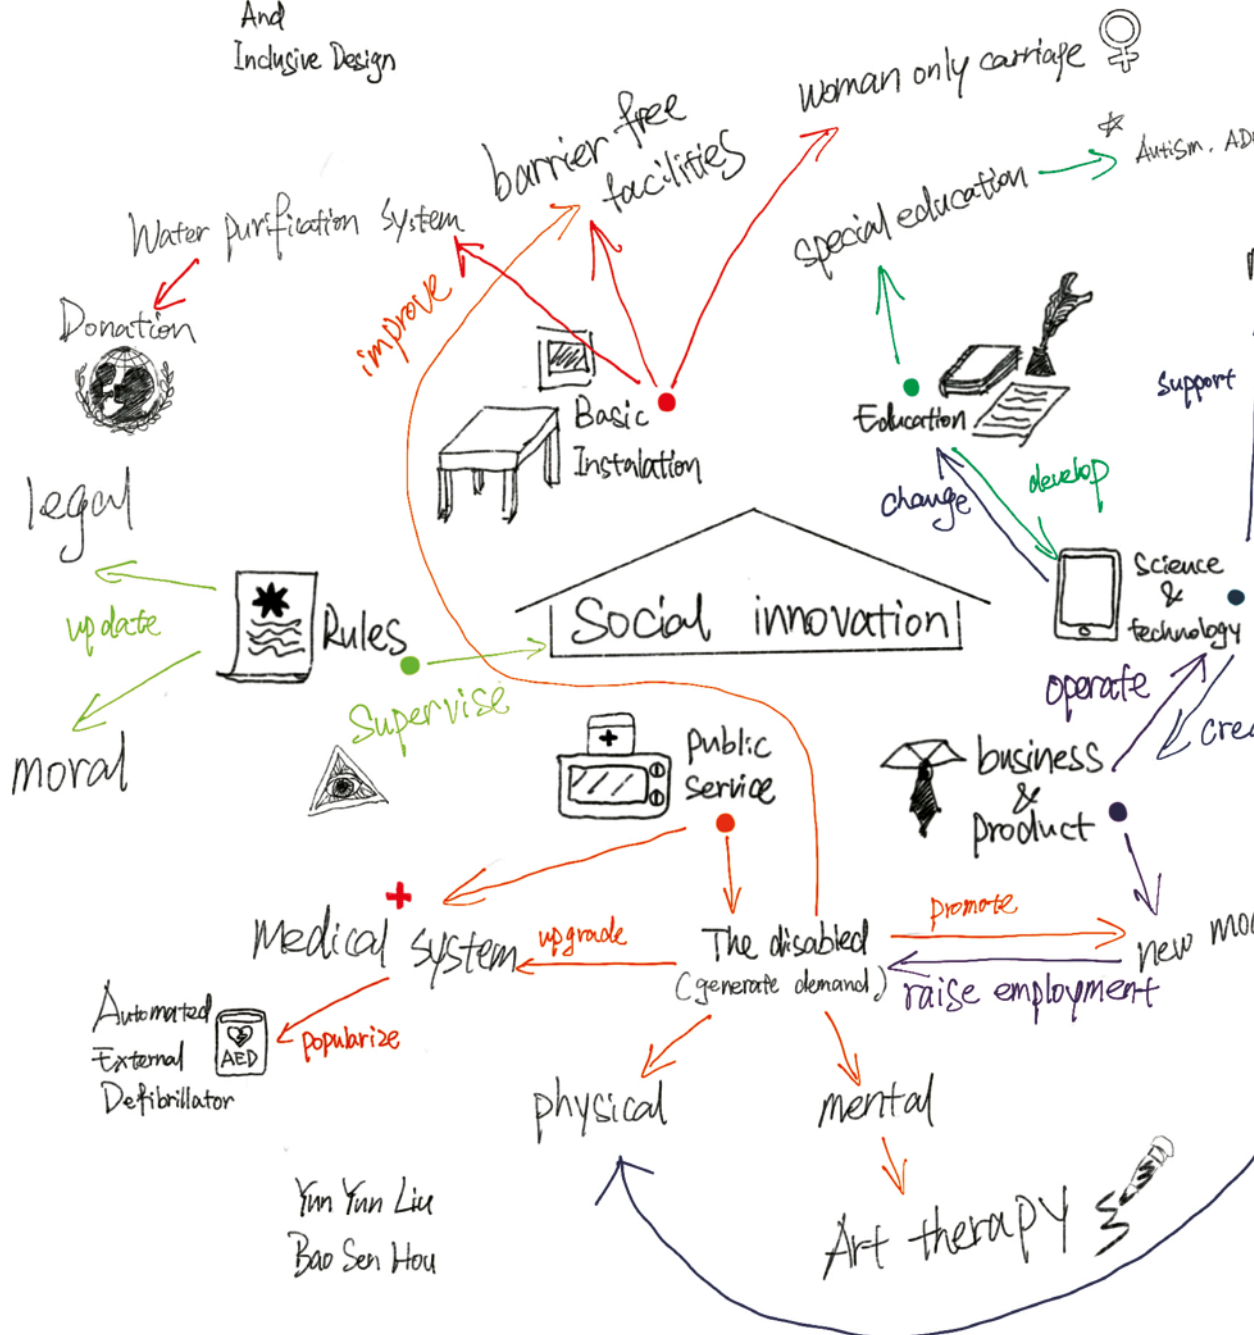 And
Inclusive Design
woman only carriage
barrier free
facilities
Autism, AD
special education
Water purification system
improve
Donation
support
Basic
Instalation
Education
develop
change
legal
Science
&
technology
update
Rules
Social innovation
operate
Supervise
moral
Public
Service
business
&
product
Medical system
upgrade
The disabled
(generate demand)
promote
new
raise employment
Automated
External
Defibrillator
AED
popularize
physical
mental
Yun Yun Liu
Bao Sen Hou
Art therapy